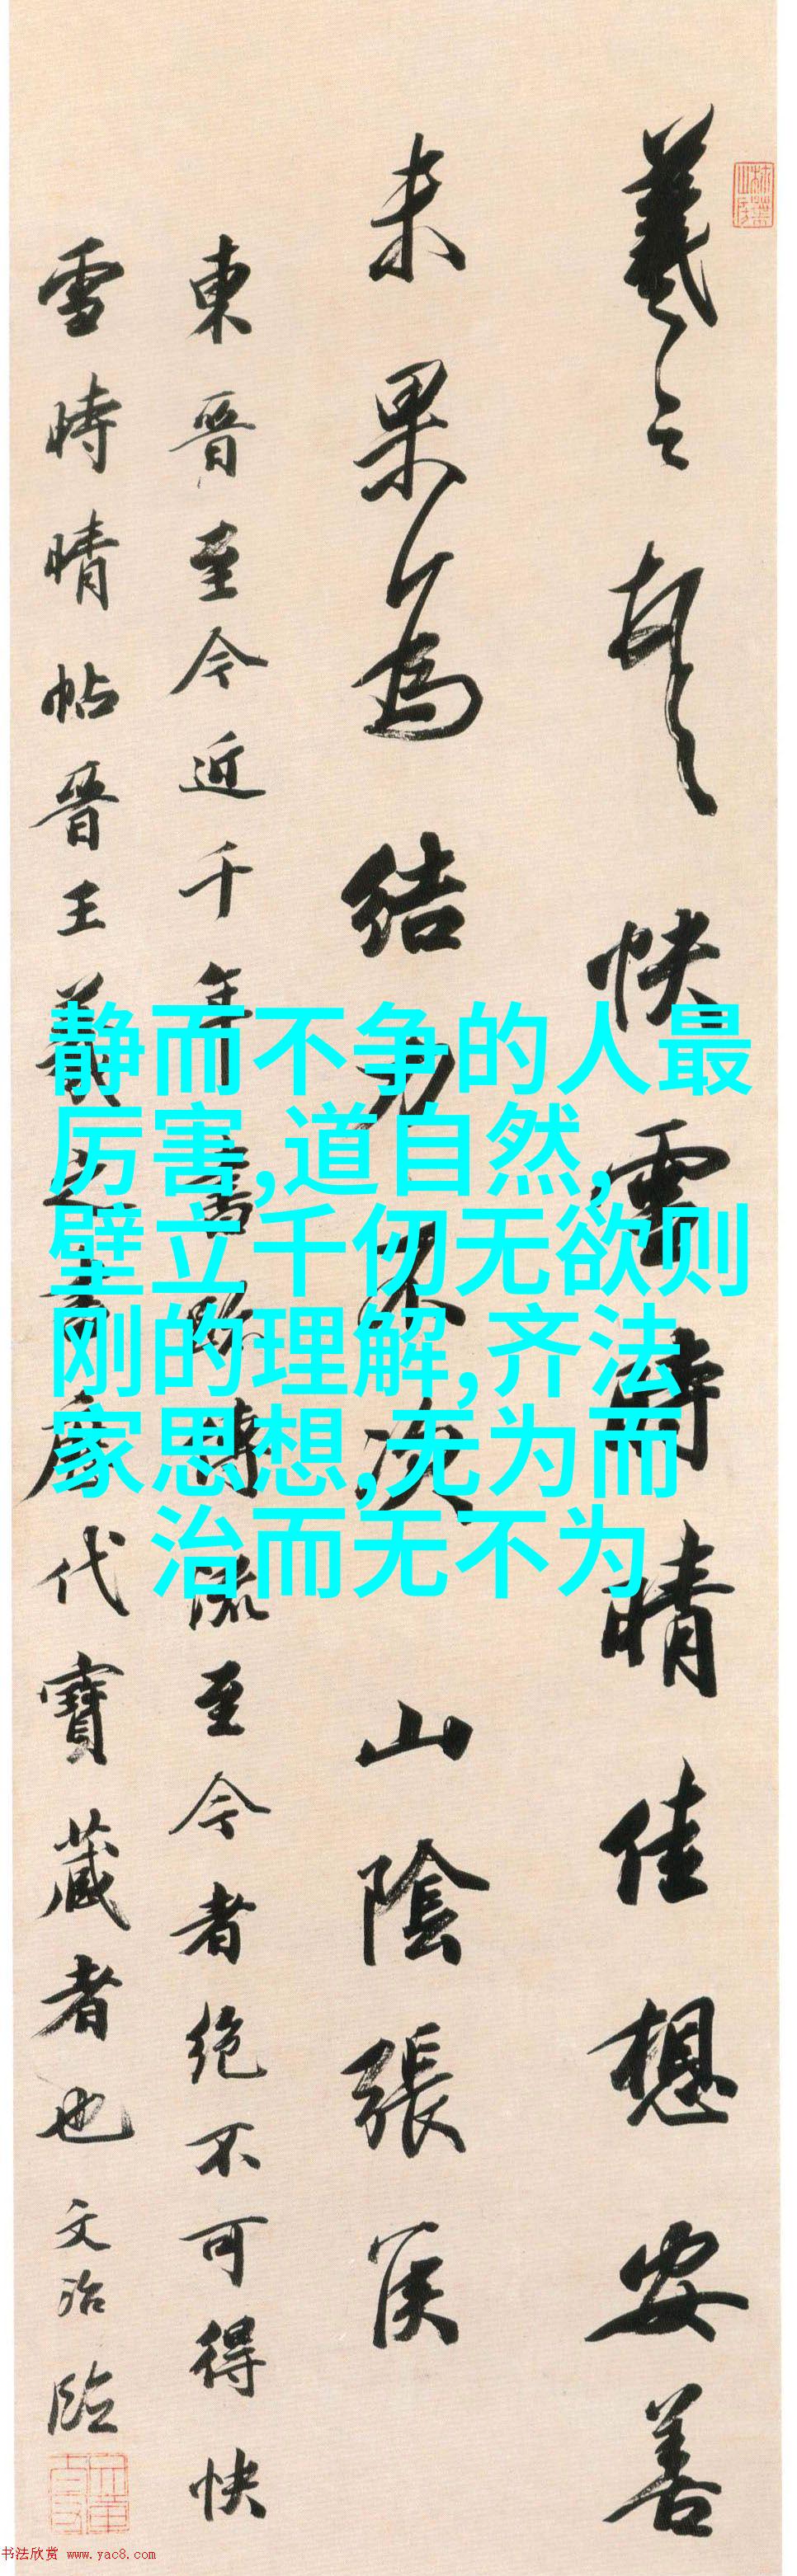 羲之頓首快雪時晴佳想安善
未果為結力不次 山陰張侯
東晉至今近千年書跡傳流至今者絕不可得快
雪時晴帖晉王羲之書歷代寶藏者也 文治臨
静而不争的人最
厉害,道自然,
壁立千仞无欲则
刚的理解,齐法
家思想,无为而
治而无不为
书法欣赏 www.yac8.com